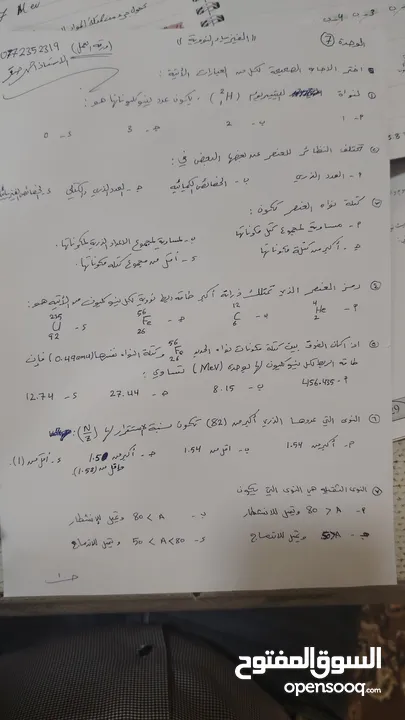 7 Mev
الوحدة (7)
"الفيزياء النووية"
(ورقة العمل)
0772352319
* اختر الإجابة الصحيحة لكل من العبارات الآتية:
① لنواة (²₁H) يكون عدد نيوكليوناتها هو:
أ- 1 ب- 2 ج- 3 د- 0
② تختلف النظائر للعنصر عن بعضها البعض في:
أ- العدد الذري ب- الخصائص الكيميائية ج- العدد الكتلي د-
③ كتلة نواة العنصر تكون:
أ- مساوية لمجموع كتل مكوناتها ب- مساوية لمجموع الأعداد الذرية لمكوناتها.
ج- أكبر من كتلة مكوناتها د- أقل من مجموع كتلة مكوناتها.
④ رمز العنصر الذي تمتلك ذراته أكبر طاقة ربط نووية لكل نيوكليون من الآتية هو:
أ- ⁴₂He ب- ¹²₆C ج- ⁵⁶₂₆Fe د- ²³⁵₉₂U
⑤ إذا كان الفرق بين كتلة مكونات نواة الحديد ⁵⁶₂₆Fe وكتلة النواة نفسها (0.49amu) فإن
طاقة الربط لكل نيوكليون لها بوحدة (MeV) تساوي:
أ- 456.435 ب- 8.15 ج- 27.44 د- 12.74
⑥ النوى التي عددها الذري أكبر من (82) تكون نسبة الاستقرار لها (N/Z):
أ- أكبر من 1.54 ب- أقل من 1.54 ج- أكبر من 1.5 د- أقل من (1).
وأقل من (1.52)
⑦ النوى الثقيلة هي النوى التي يكون
أ- 80 > A وتميل للانشطار ب- 80 < A وتميل للانشطار
ج- 50 > A وتميل للاندماج د- 50 < A < 80 وتميل للاندماج
السوق المفتوح
opensooq.com